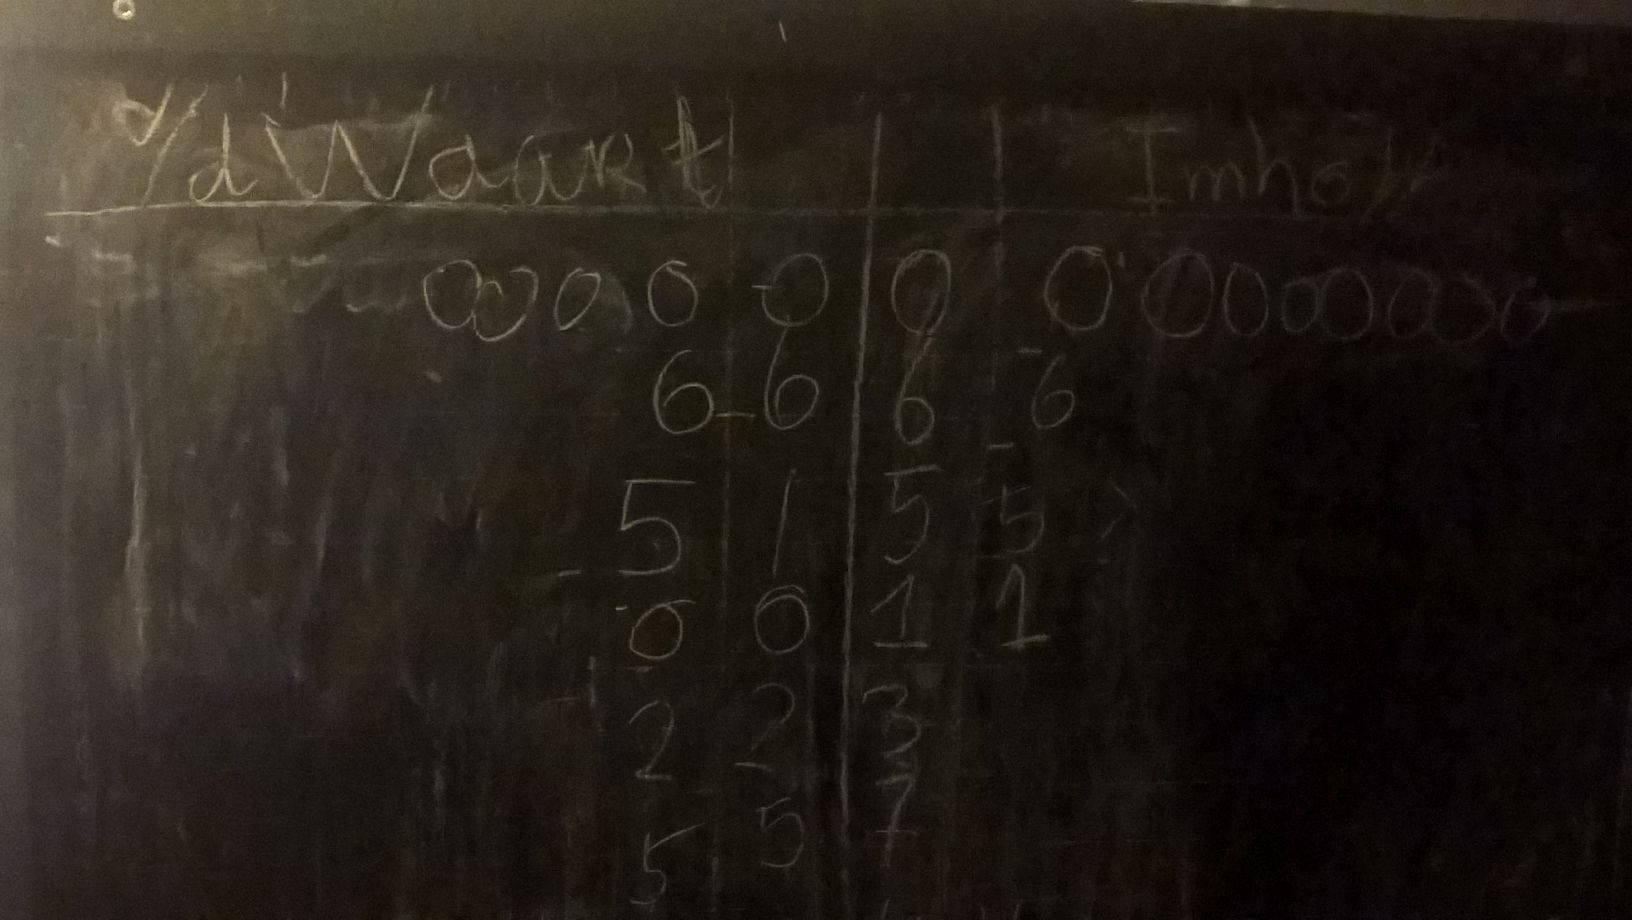 v/d Waart Imhof
0000 0 0 00000000
6 6 6 6
5 1 5 5
0 0 1 1
2 2 3
5 5 7